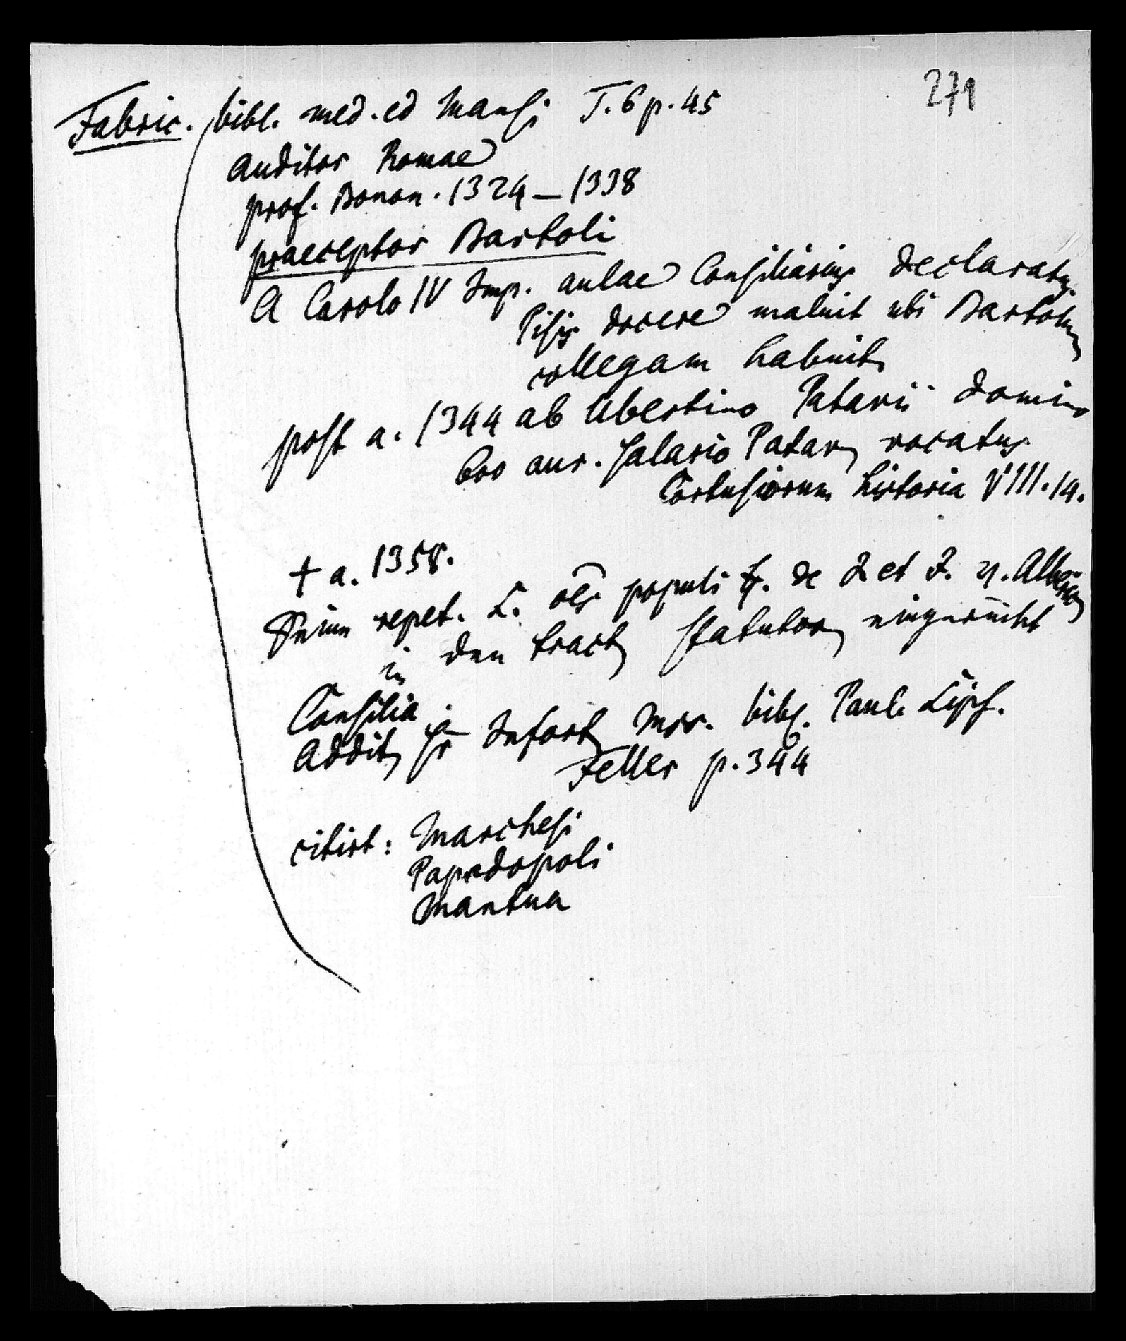 271
Fabric. bibl. med. ed Mansi T. 6 p. 45
Auditor Romae
prof. Bonon. 1324 – 1338
praeceptor Bartoli
A Carolo IV Imp. aulae Consiliarius declaratus
Pisis docere maluit ubi Bartolum
collegam habuit
post a. 1344 ab Ubertino Patavii domino
600 aur. salario Patav vocatus
Cortusiorum historia VIII. 14.
† a. 1358.
Seine repet. L. oēs populi ff. de J. et J. v.
in den tract statutor eingerückt
Consilia
Addit in Infort Mss. bibl. Paul. Lips.
Feller p. 344
citirt: Marchesi
Papadopoli
Mantua